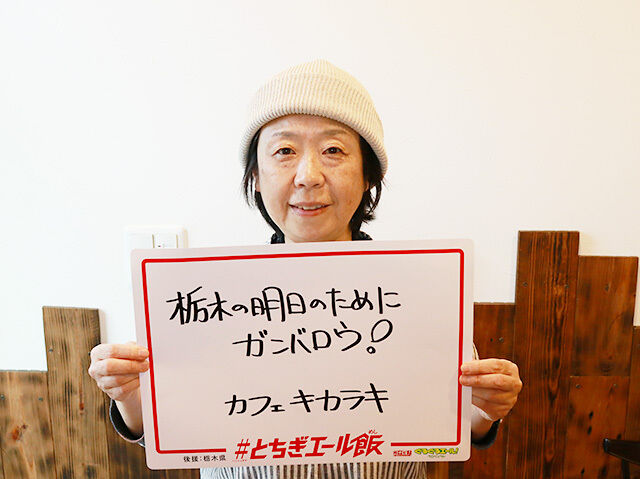 栃木の明日のために
ガンバロウ!
カフェ キカラキ
後援:栃木県
#とちぎエール飯
めし